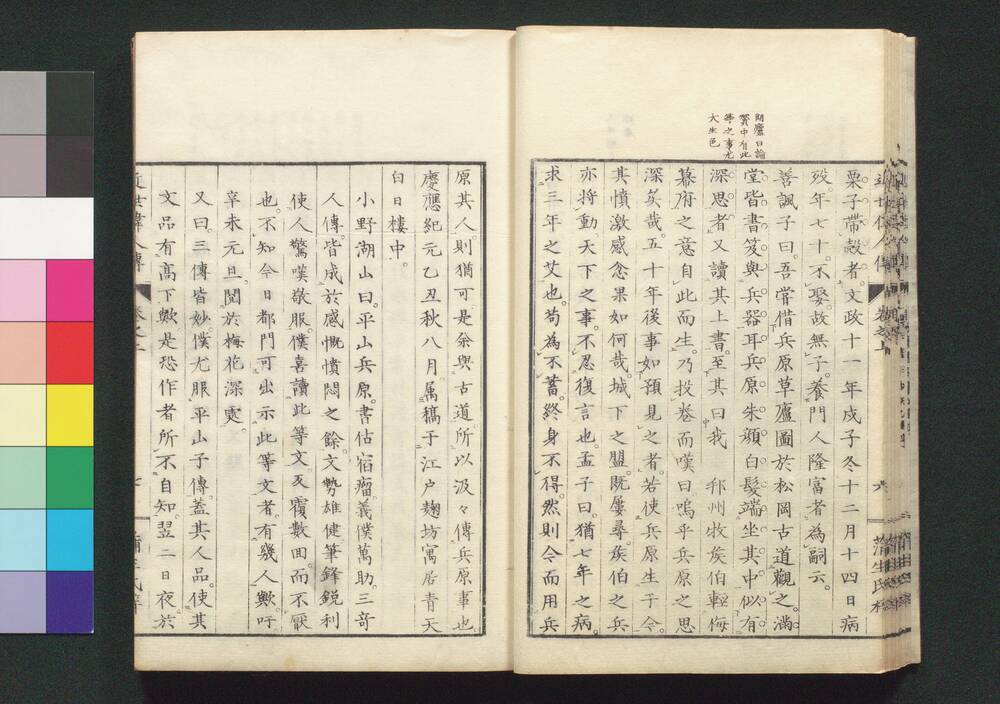 栗子帶殼者。文政十一年戊子冬十二月十四日病
歿。年七十。不娶。故無子。養門人隆富者為嗣云。
善諷子曰。吾嘗借兵原草廬圖於松岡古道觀之。滿
堂皆書笈與兵器耳。兵原朱顏白髮。端坐其中。似有
深思者。又讀其上書。至其曰我 邦州牧矦伯輕侮
幕府之意自此而生。乃投巻而嘆曰。嗚乎兵原之思
深矣哉。五十年後事如預見之者。若使兵原生于今。
其憤激感忿果如何哉。城下之盟。既屢尋矦伯之兵
亦將動天下之事。不忍復言也。孟子曰。猶七年之病。
求三年之艾也。苟為不蓄。終身不得。然則今而用兵
閒麐曰論
賛中有此
等之事尤
大生色
六
蒲生氏
原其人則猶可。是余與古道所以汲々傳兵原事也
慶應紀元乙丑秋八月。属稿于江户麹坊寓居青天
白日樓中。
小野湖山曰。平山兵原。書估宿瘤。義僕萬助。三奇
人傳。皆成於感慨憤悶之餘。文勢雄健筆鋒鋭利
使人驚嘆敬服。僕喜讀此等文。反覆數回。而不厭
也。不知今日都門可出示此等文者。有幾人歟。吁
辛未元旦。閲於梅花深處。
又曰。三傳皆妙。僕尤服平山子傳。蓋其人品。使其
文品有高下歟。是恐作者所不自知。翌二日夜於
近世偉人傳